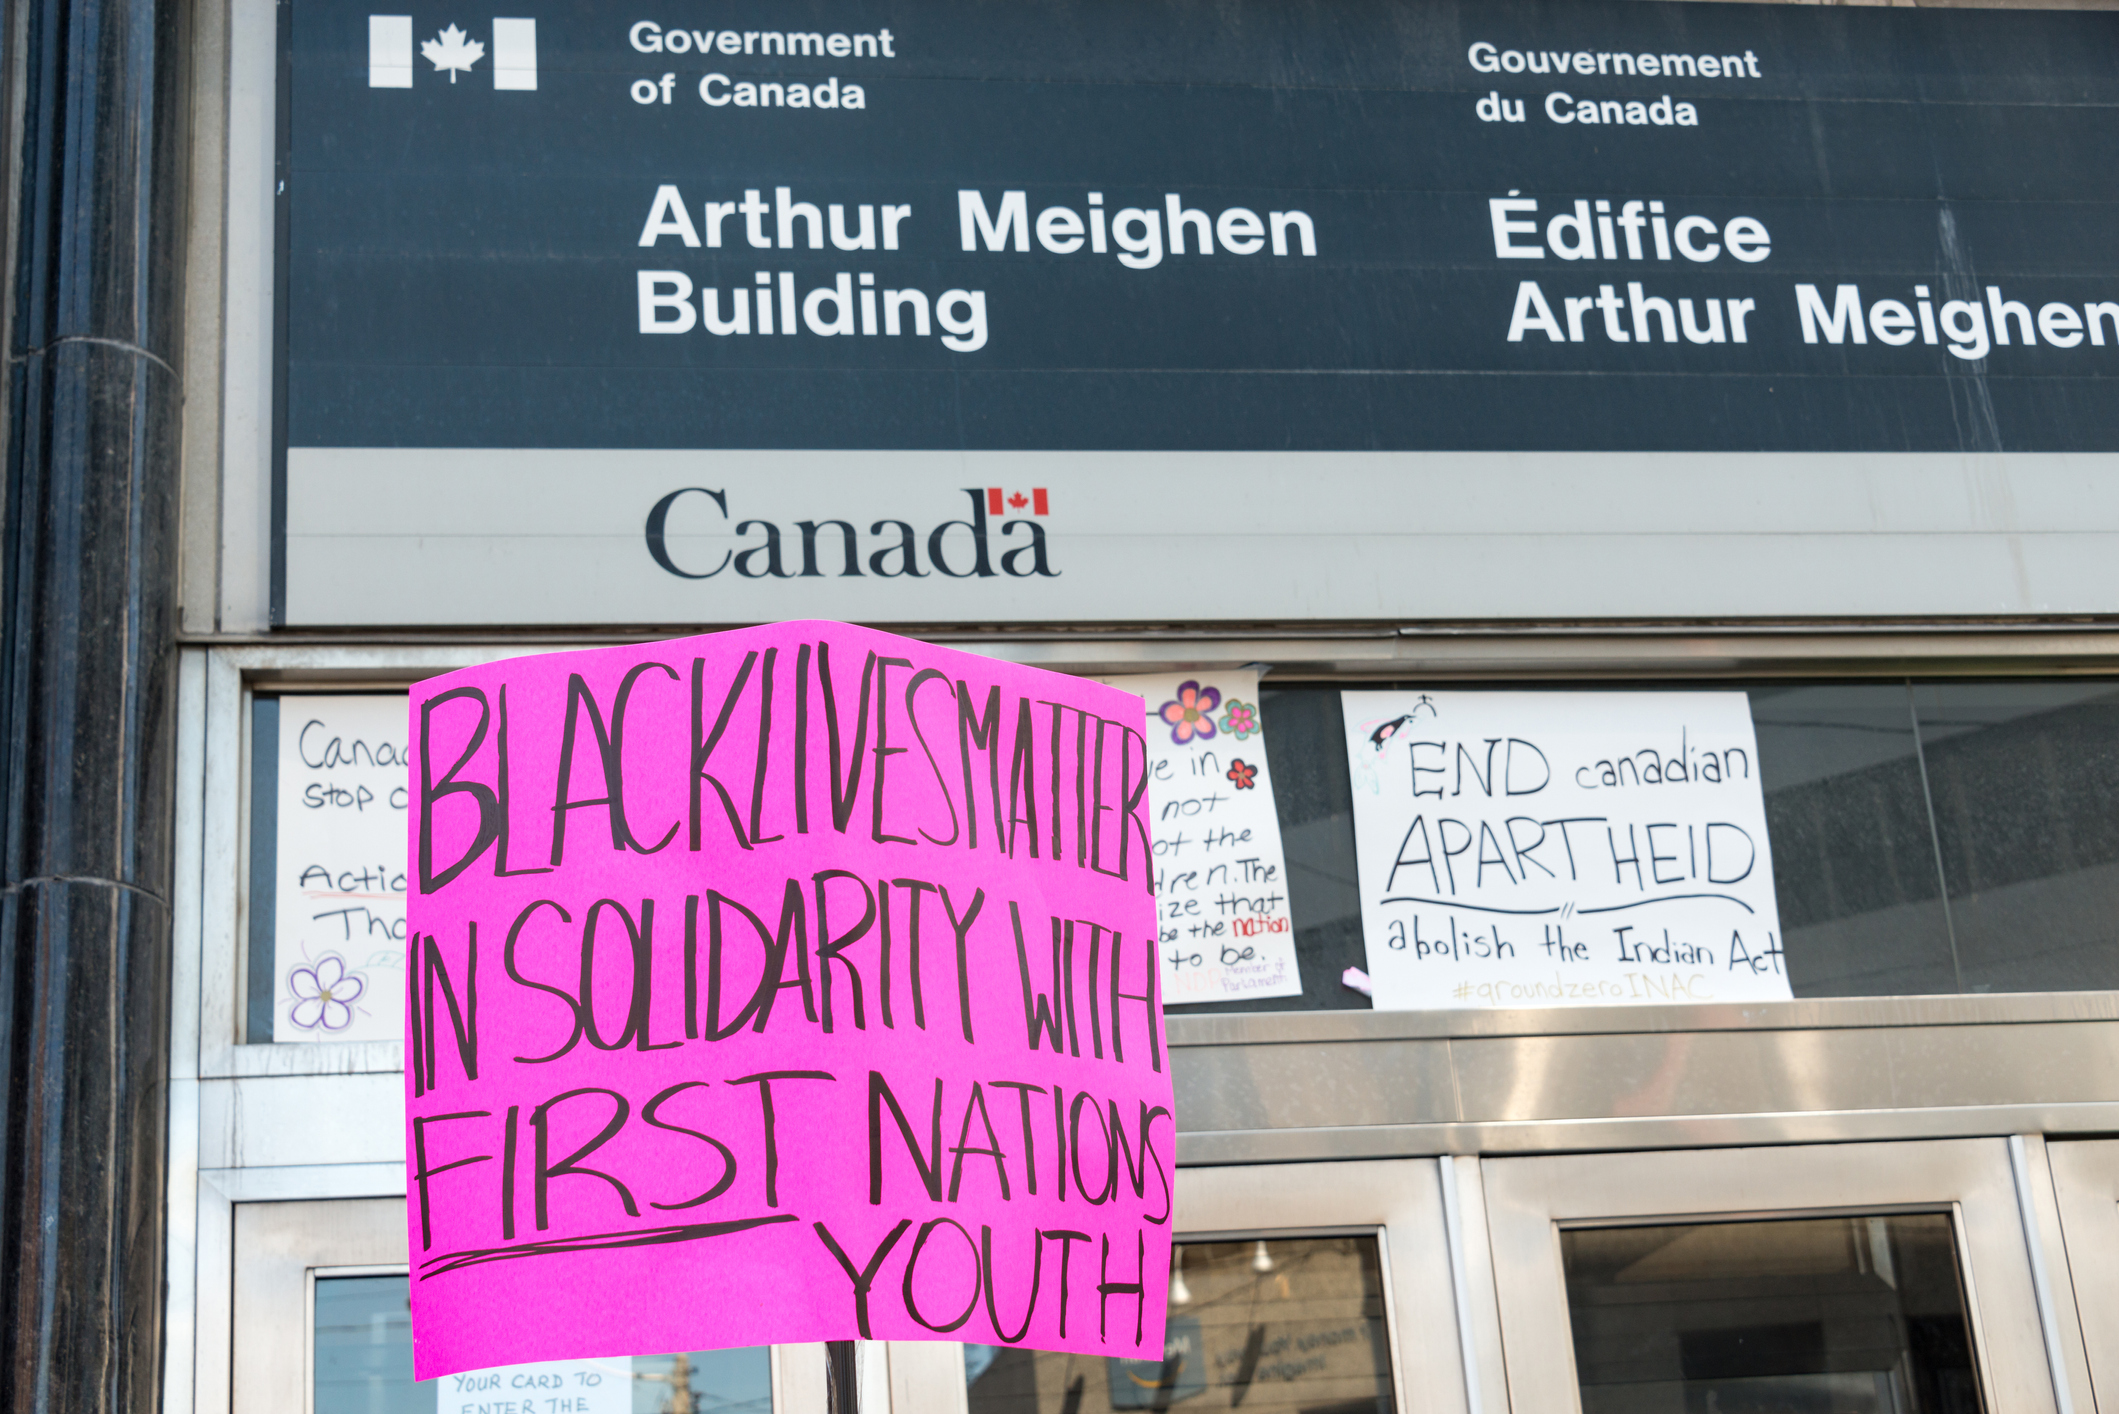 Government
of Canada
Gouvernement
du Canada
Arthur Meighen
Building
Édifice
Arthur Meighen
Canada
BLACK LIVES MATTER
IN SOLIDARITY WITH
FIRST NATIONS
YOUTH
Canad
stop
Actio
Tha
in
not
ot the
dren. The
ize that
be the nation
to be.
NDP Member of
Parliament
END canadian
APARTHEID
abolish the Indian Act
#groundzeroINAC
YOUR CARD TO
ENTER THE